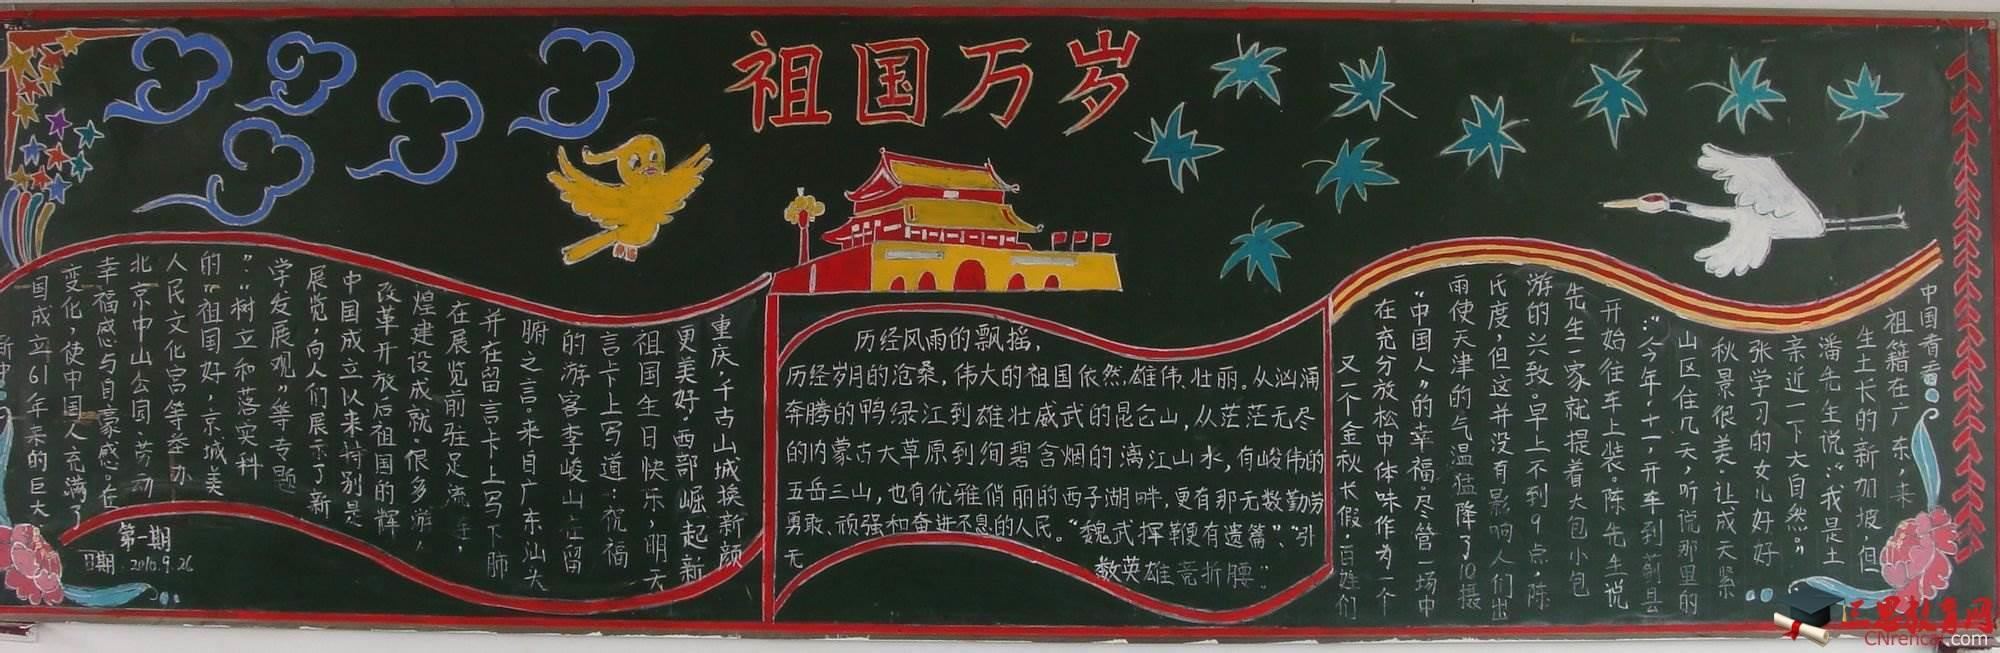 祖国万岁
中国青
祖籍在广东,来
生土长的新加坡,但
潘先生说:“我是土
亲近一下大自然。”
张学习的女儿好好
秋景很美,让成天紧
山区住几天,听说那里的
:“今年,十一,开车到蓟县
开始往车上装。陈先生说
先生一家就提着大包小包
游的兴致。早上不到9点,陈
氏度,但这并没有影响人们出
雨使天津的气温猛降了10摄
“中国人”的幸福,尽管一场中
在充分放松中体味作为一个
又一个金秋长假,百姓们
历经风雨的飘摇,
历经岁月的沧桑,伟大的祖国依然雄伟、壮丽。从汹涌
奔腾的鸭绿江到雄壮威武的昆仑山,从茫茫无尽
的内蒙古大草原到绚碧含烟的漓江山水,有峻伟的
五岳三山,也有优雅俏丽的西子湖畔,更有那无数勤劳
勇敢、顽强和奋进不息的人民。“魏武挥鞭有遗篇”、“引
无
数英雄竞折腰”。
重庆,千古山城换新颜
更美好,西部崛起新
祖国生日快乐,明天
言卡上写道:祝福
的游客李峻山在留
腑之言。来自广东汕头
并在留言卡上写下肺
在展览前驻足流连,
煌建设成就。很多游
改革开放后祖国的辉
中国成立以来特别是
展览,向人们展示了新
学发展观”等专题
”、“树立和落实科
的“祖国好,京城美
人民文化宫等举办
北京中山公园、劳动
幸福感与自豪感。在
变化,使中国人充满了
国成立61年来的巨大
新中
第一期
日期:2010.9.26
三恩教育网
CNrencai.com